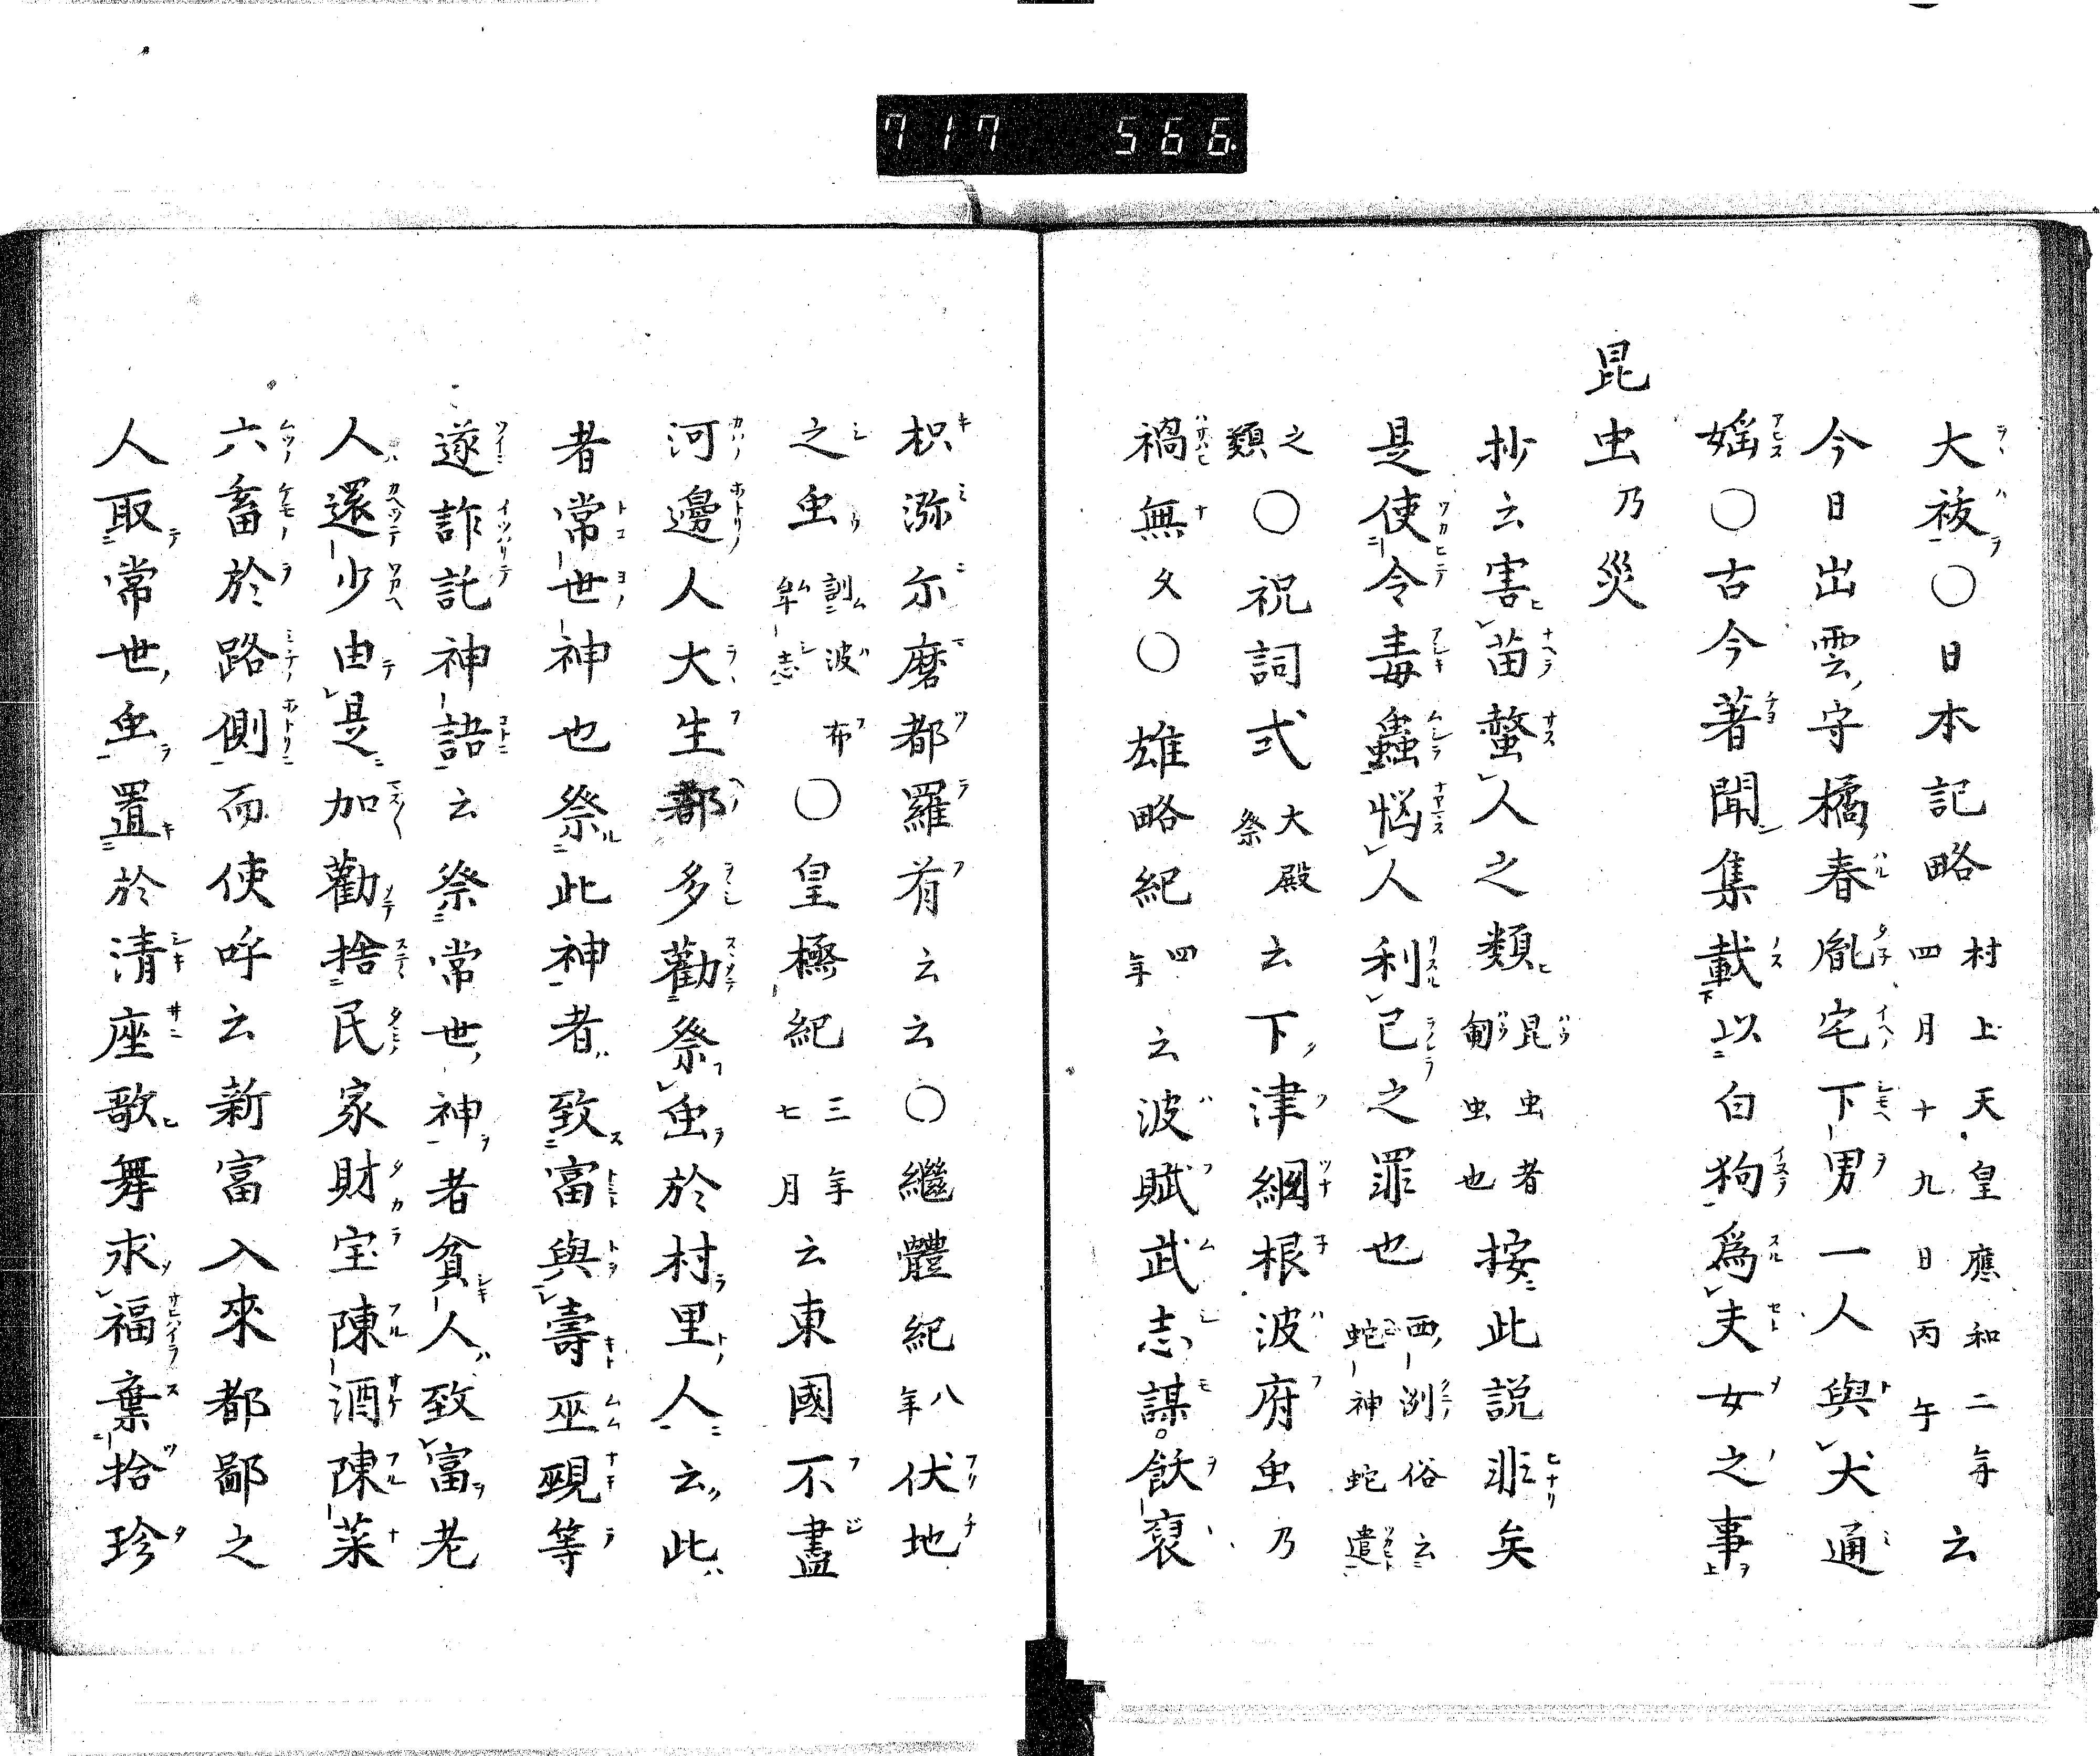 717 566
大祓○日本記略村上天皇應和二年四月十九日丙午云
今日出雲守橘春胤宅下男一人與犬通
婬○古今著聞集載以白狗爲夫女之事
昆虫乃災
抄云害苗螫人之類昆虫者匍虫也按此説非矣
是使令毒蠱惱人利己之罪也西洌俗云蛇神蛇遣
之類○祝詞式大殿祭云下津綱根波府虫乃
禍無久○雄略紀四年云波賦武志謀飫裒
枳瀰尓磨都羅符云云○繼體紀八年伏地
之虫訓波布牟志○皇極紀三年七月云東國不盡
河邊人大生部多勸祭虫於村里人云此
者常世神也祭此神者致富與壽巫覡等
遂詐託神語云祭常世神者貧人致富老
人還少由是加勸捨民家財宝陳酒陳菜
六畜於路側而使呼云新富入來都鄙之
人取常世虫置於清座歌舞求福棄捨珍